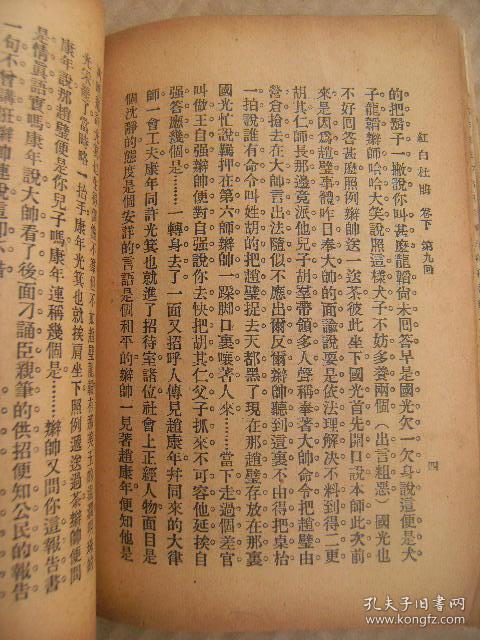 紅白杜鵑 卷下 第九回
四
的把鬍子一撇說你叫甚麽龍韜尙未回答早是國光欠一欠身說這便是犬
子龍韜辮帥哈哈大笑說照這樣犬子不妨多養兩個(出言粗惡)國光也
不好回答甚麽照例辮帥送一送茶彼此坐下國光首先開口說本師此次前
來是因爲趙璧事體昨日奉大帥的面諭說要是依法理解決不料到得二更
胡其仁師長那邊竟派他兒子胡羣帶領多人聲稱奉著大帥命令把趙璧由
營倉搶去在大帥言出法隨似不應出爾反爾辮帥聽到這裏不由得把桌枱
一拍說誰有命令叫姓胡的把趙璧提去天都黑了現在那趙璧存放在那裏
國光忙說羈押在第六師辮帥一跺脚口裏嚷著人來……當下走過個差官
叫做王自强辮帥便對自强說你去快把胡其仁父子抓來不可容他延挨自
强答應幾個是……一轉身去了一面又招呼人傳見趙康年幷同來的大律
師一會工夫康年同許光箕也就進了招待室諸位社會上正經人物面目是
個沈靜的態度是個安詳的言語是個和平的辮帥一見著趙康年便知他是
光箕應了當時略一抬手康年光箕也就挨肩坐下照例遞送過茶辮帥便問
康年說那趙璧便是你兒子嗎康年連稱幾個是……辮帥又問你這報告書
是情眞語實嗎康年說大帥看了後面刁誦臣親筆的供招便知公民的報告
一句不曾講誑辮帥連說
孔夫子旧书网
book.kongfz.com